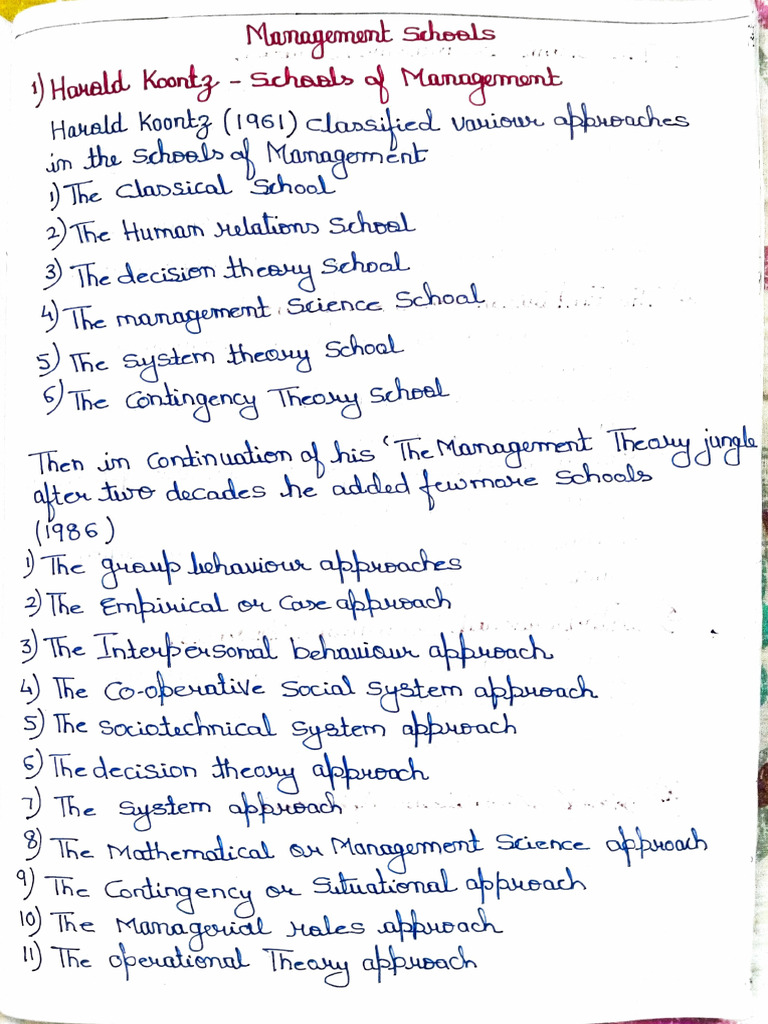 Management Schools
1) Harold Koontz - Schools of Management
Harold Koontz (1961) classified variour approaches
in the schools of Management
1) The Classical School
2) The Human relations School
3) The decision theory School
4) The management Science School
5) The system theory School
6) The Contingency Theory School
Then in continuation of his 'The Management Theory jungle
after two decades he added few more schools
(1986)
1) The group behaviour approaches
2) The Empirical or Case approach
3) The Interpersonal behaviour approach
4) The Co-operative Social System approach
5) The sociotechnical system approach
6) The decision theory approach
7) The system approach
8) The Mathematical or Management Science approach
9) The Contingency or Situational approach
10) The Managerial roles approach
11) The operational Theory approach